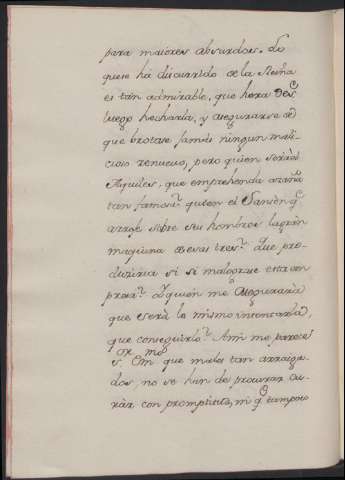 para maiores absurdos. Lo
que se há discurrido de la Reina
es tan admirable, que hera
luego hecharla, y asegurarse de
que brotase jamás ningun mali-
cioso renuevo, pero quien será
Aquiles, que emprehenda
tan famosa, quien el Sansón q.e
arroje sobre sus hombros la gran
maquina de esas tres? Que pro-
duciria si si malograse esta em
presa? Y quien me asegurará
que será lo mismo intentarla,
que conseguirlo? A mi me parece
S.or mio
que males tan arraiga-
dos, no se han de procurar cu-
rar con promptitud, ni q.e tampoco